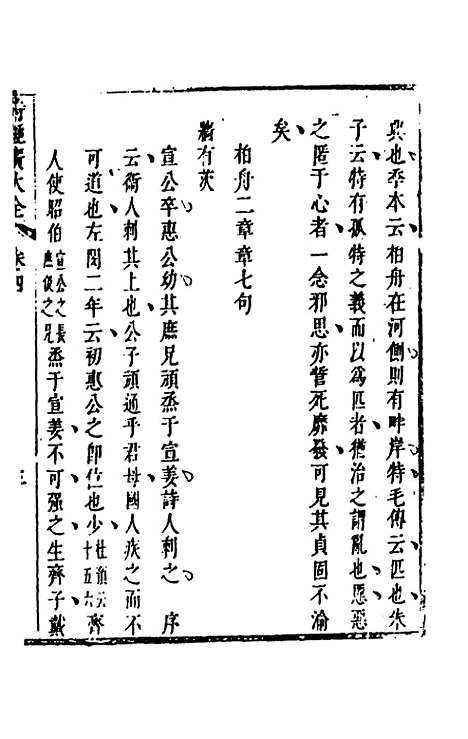 興也季本云柏舟在河側則有畔岸特毛傳云匹也朱
子云特有孤特之義而以為匹者猶治之謂亂也慝惡
之匿于心者一念邪思亦誓死靡發可見其貞固不渝
矣
柏舟二章章七句
牆有茨
宣公卒惠公幼其庶兄頑烝于宣姜詩人刺之 序
云衞人刺其上也公子頑通乎君母國人疾之而不
可道也左閔二年云初惠公之即位也少杜預云十五六齊
人使昭伯宣公之長庶伋之兄烝于宣姜不可强之生齊子戴
詩經廣大全 卷四 三